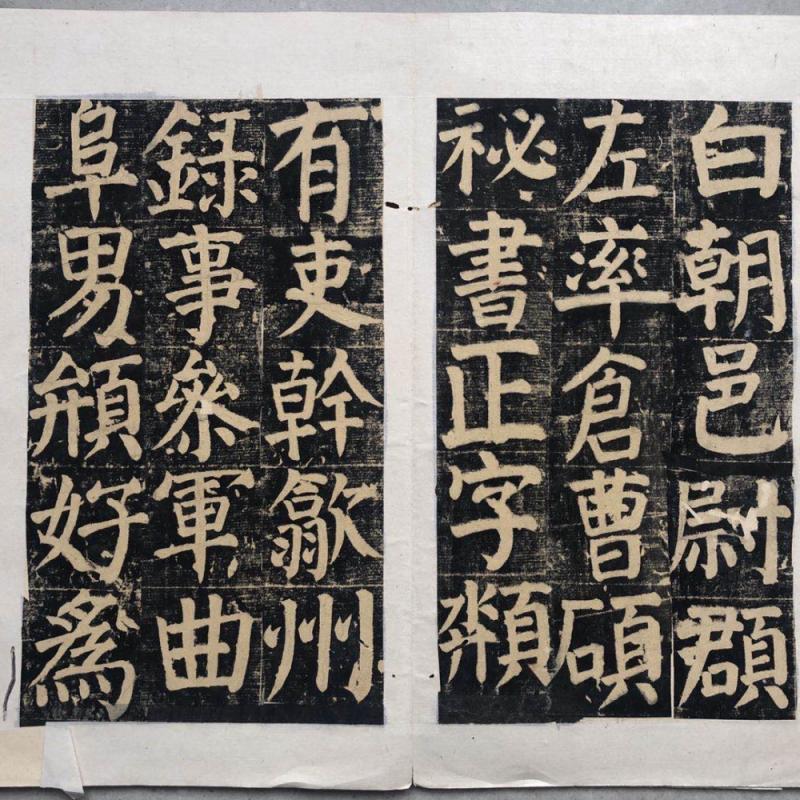 白朝邑尉頵
左率倉曹碩
祕書正字
有吏幹歙州
錄事叅軍曲
阜男頩好為